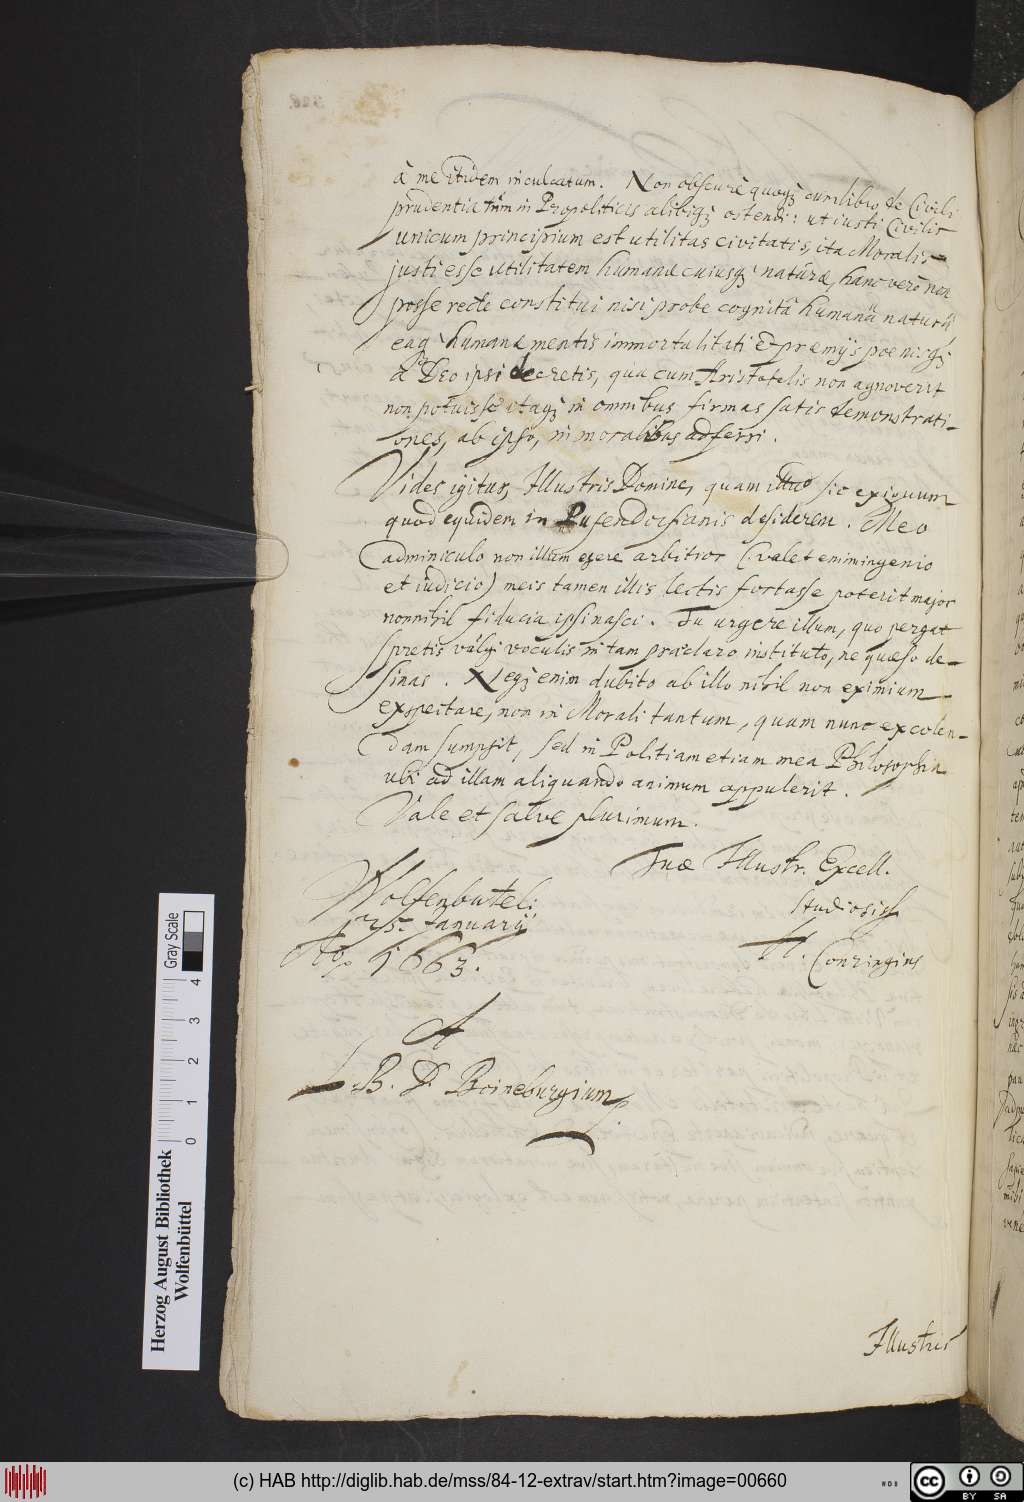 à me itidem inculcatum. Non obscurè quoqȝ cum libro de Civili
prudentia tùm in Propoliticis alibiqȝ ostendi: ut iusti Civilis
unicum principium est utilitas civitatis, ita Moralis
justi esse utilitatem humanæ cuiusqȝ naturæ, hanc verò non
posse recte constitui nisi probe cognitâ humanâ naturâ
eaqȝ humanæ mentis immortalitati & præmijs poenisqȝ
à Deo ipsi decretis, quæ cum Aristotelis non agnoverit
non potuisse itaqȝ in omnibus firmas satis demonstrati-
ones, ab ipso, in moralibus adferri.
Vides igitur, Illustris Domine, quam illud sic exiguum
quod equidem in Pufendorfianis desiderem. Meo
adminiculo non illum egere arbitror (valet enim ingenio
et iudicio) meis tamen illis lectis fortasse poterit major
nonnihil fiducia ipsi nasci. Tu urgere illum, quo pergat
spretis vulgi voculis in tam præclaro instituto, ne quæso de-
sinas. Neqȝ enim dubito ab illo nihil non eximium
exspectare, non in Morali tantum, quam nunc excolen-
dam sumpsit, sed in Politia etiam mea Philosophia
ubi ad illam aliquando animum appulerit.
Vale et salve plurimum.
Tuæ Illustr. Excell.
Wolfenbutteli
studiosiss
25. Januarij
H. Conringius
Aº 1663.
A
L. B. D. Boineburgium
Illustris
Herzog August Bibliothek
Wolfenbüttel
0 1 2 3 4
Gray Scale
(c) HAB http://diglib.hab.de/mss/84-12-extrav/start.htm?image=00660
cc BY SA